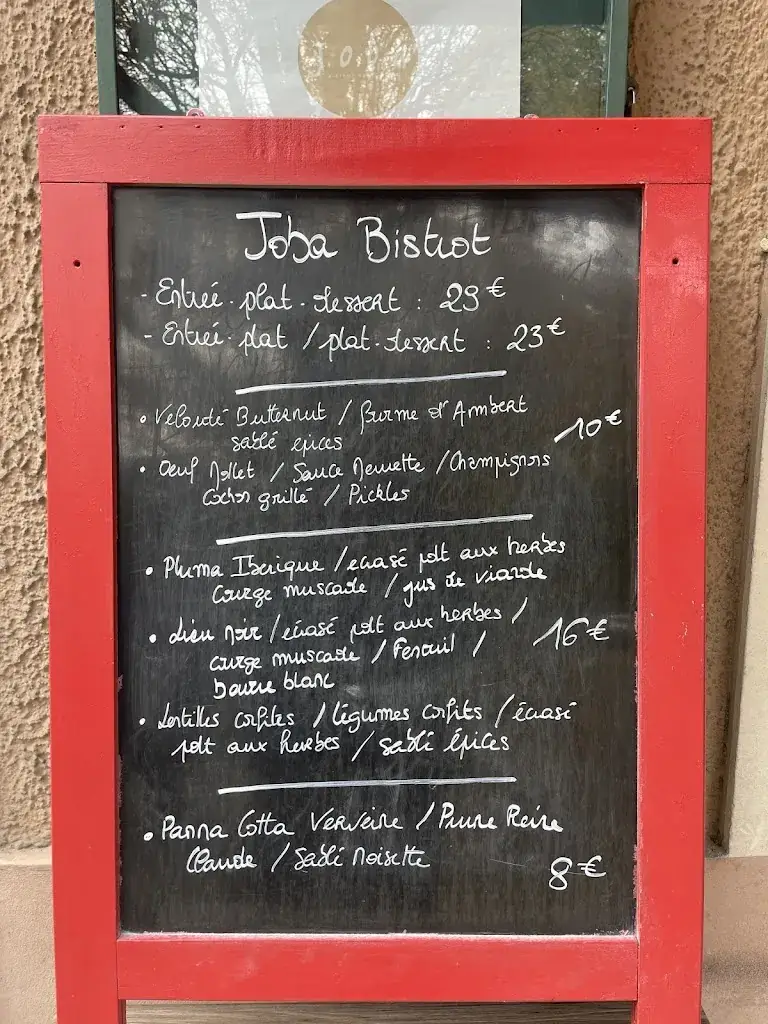 JOBA
Joba Bistrot
- Entrée. plat. dessert : 29€
- Entrée. plat / plat. dessert : 23€
• Velouté Butternut / fourme d'Ambert
sablé épices
10€
• Oeuf Mollet / Sauce Meurette / Champignons
Cochon grillé / Pickles
• Pluma Iberique / écrasé pdt aux herbes
courge muscade / jus de viande
• Lieu noir / écrasé pdt aux herbes /
courge muscade / Fenouil /
16€
beurre blanc
• Lentilles confites / légumes confits / écrasé
pdt aux herbes / sablé épices
• Panna Cotta Verveine / Prune Reine
Claude / Sablé noisette
8€